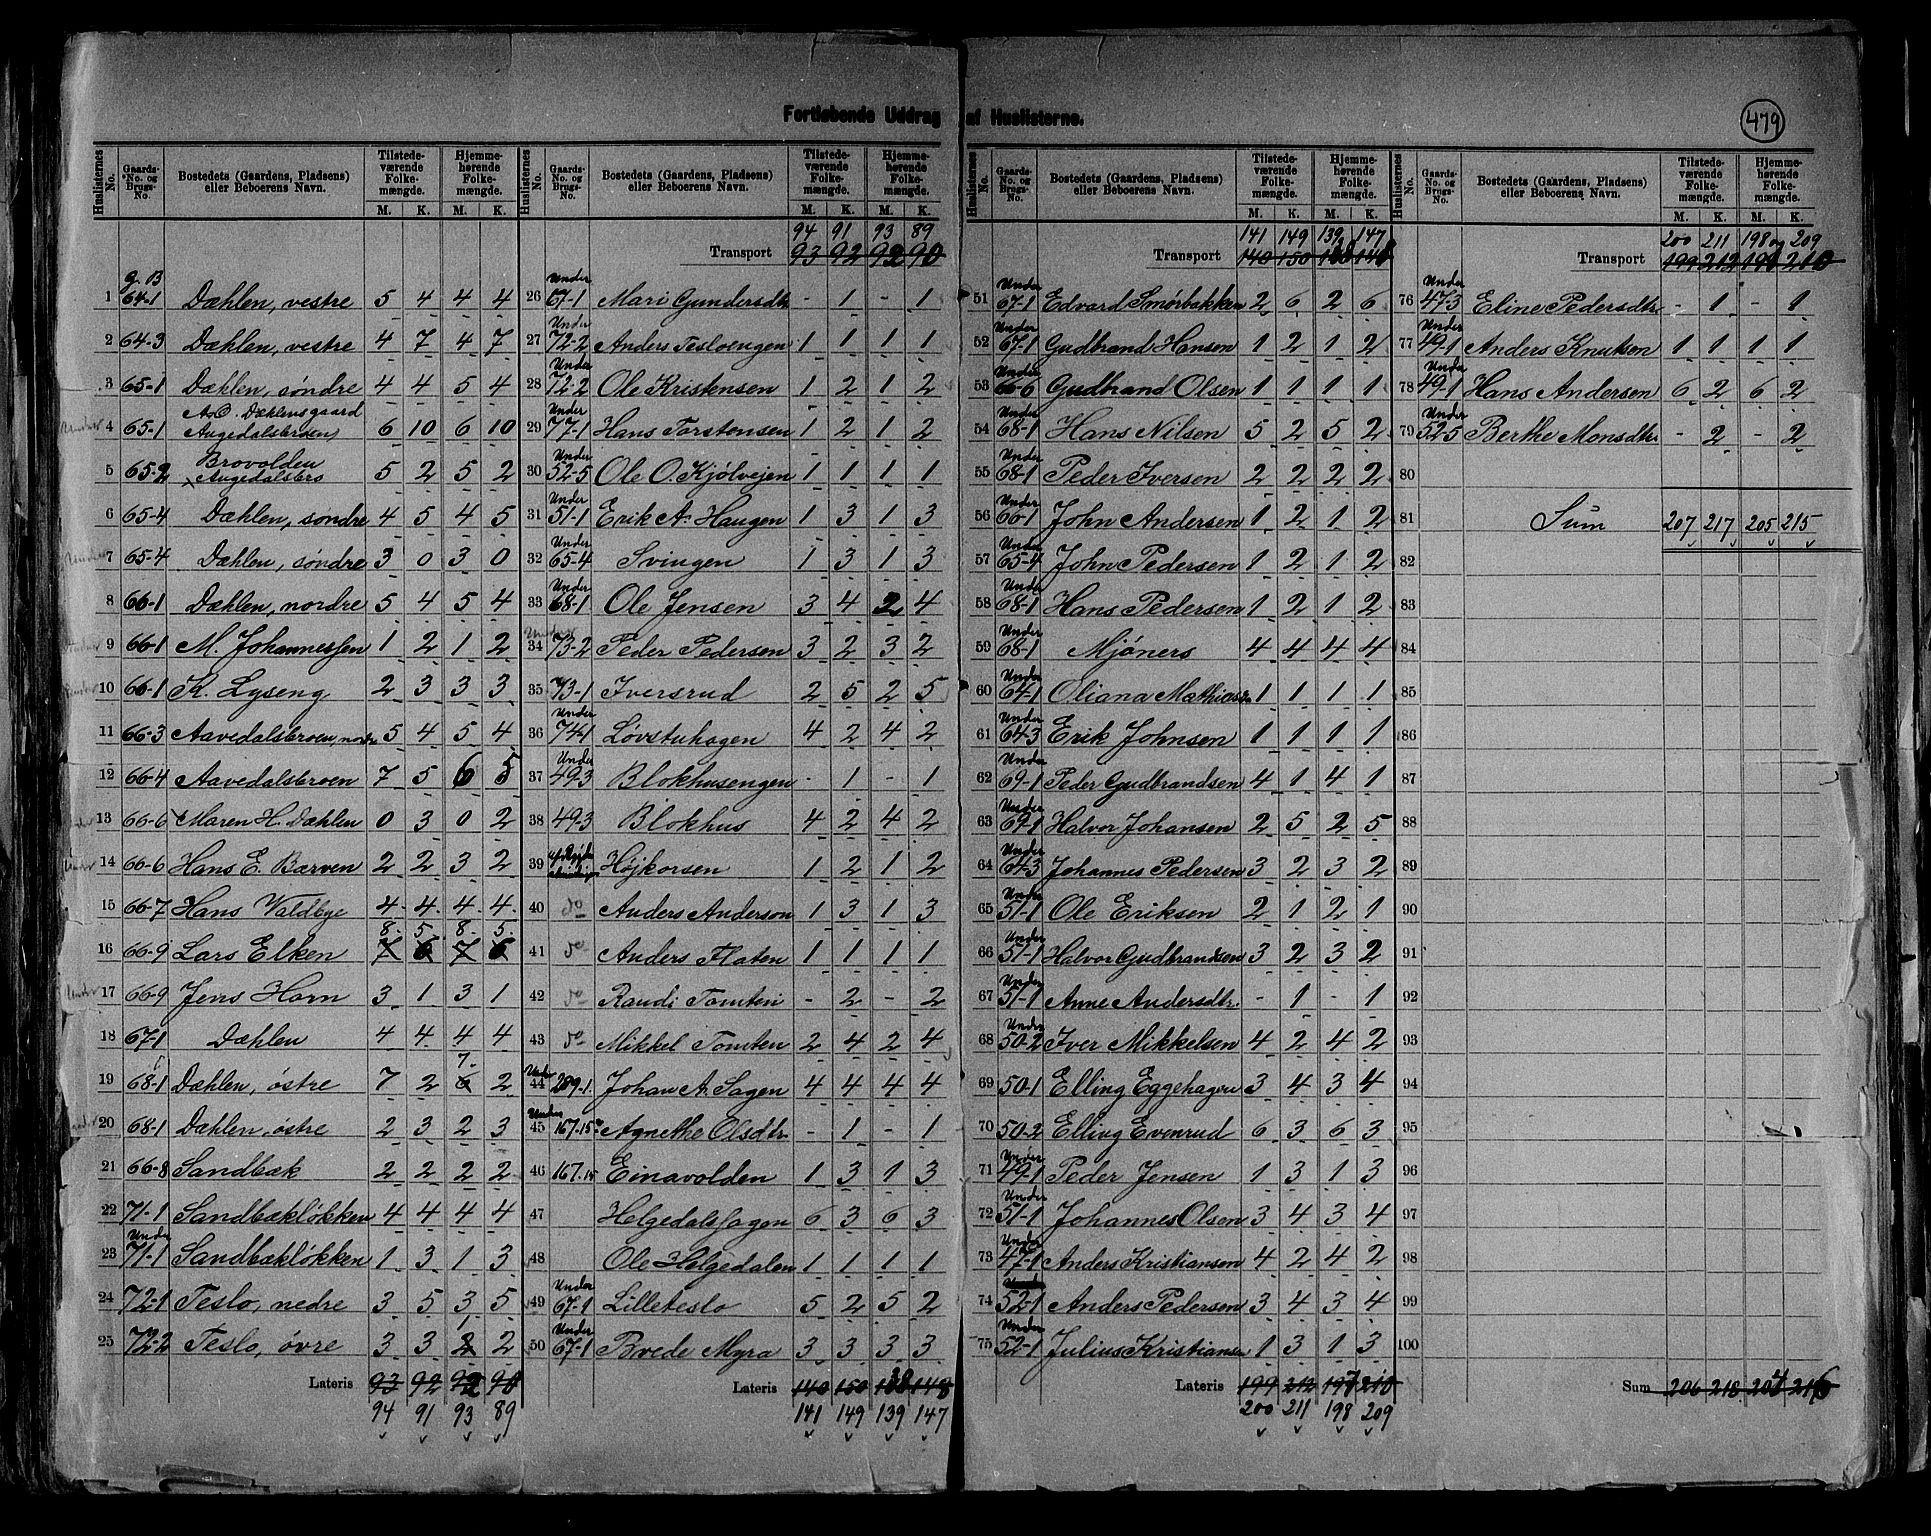 Fortløbende Uddrag af Huslisterne.
479
Huslisternes No. | Gaards-No. og Brugs-No. | Bostedets (Gaardens, Pladsens) eller Beboerens Navn. | Tilstedeværende Folkemængde. M. K. | Hjemmehørende Folkemængde. M. K.
g. B
1 64-1 Dæhlen, vestre 5 4 4 4
2 64-3 Dæhlen, vestre 4 7 4 7
3 65-1 Dæhlen, søndre 4 4 5 4
Under 4 65-1 A.C. Dæhlensgaard Augedalsbroen) 6 10 6 10
5 65-2 Brovolden Augedalsbro 5 2 5 2
6 65-4 Dæhlen, søndre 4 5 4 5
Under 7 65-4 Dæhlen, søndre 3 0 3 0
8 66-1 Dæhlen, nordre 5 4 5 4
Under 9 66-1 M. Johannessen 1 2 1 2
Under 10 66-1 K. Lyseng 2 3 3 3
11 66-3 Aavedalsbroen, nordre 5 4 5 4
12 66-4 Aavedalsbroen 7 5 6 5
Under 13 66-6 Maren H. Dæhlen 0 3 0 2
Under 14 66-6 Hans E. Barven 2 2 3 2
15 66-7 Hans Valdbye 4 4 4 4
8. 5. 8. 5.
16 66-9 Lars Elken 7 6 7 6
Under 17 66-9 Jens Horn 3 1 3 1
18 67-1 Dæhlen 4 4 4 4
7.
19 68-1 Dæhlen, østre 7 2 6 2
Under 20 68-1 Dæhlen, østre 2 3 2 3
21 66-8 Sandbæk 2 2 2 2
22 71-1 Sandbækløkken 4 4 4 4
23 Under 71-1 Sandbækløkken 1 3 1 3
24 72-1 Teslo, nedre 3 5 3 5
25 72-2 Teslo, øvre 3 3 2 2
Lateris 93 92 92 90
94 91 93 89
Huslisternes No. | Gaards-No. og Brugs-No. | Bostedets (Gaardens, Pladsens) eller Beboerens Navn. | Tilstedeværende Folkemængde. M. K. | Hjemmehørende Folkemængde. M. K.
94 91 93 89
Transport 93 92 92 90
26 Under 67-1 Mari Gundersdtr - 1 - 1
27 Under 72-2 Anders Tesloengen 1 1 1 1
28 Under 72-2 Ole Kristensen 1 2 1 2
29 Under 77-1 Hans Torstensen 1 2 1 2
30 Under 52-5 Ole O. Kjølvejen 1 1 1 1
31 Under 51-1 Erik A. Haugen 1 3 1 3
32 Under 65-4 Svingen 1 3 1 3
33 Under 68-1 Ole Jensen 3 4 2 4
34 Under 73-2 Peder Pedersen 3 2 3 2
35 73-1 Iversrud 2 5 2 5
36 Under 74-1 Løvstuhagen 4 2 4 2
37 Under 49-3 Blokhusengen - 1 - 1
38 49-3 Blokhus 4 2 4 2
39 Højkorsen 1 2 1 2
40 do Anders Anderson 1 3 1 3
41 do Anders Flaten 1 1 1 1
42 do Randi Tomten - 2 - 2
43 do Mikkel Tomten 2 4 2 4
Under 44 289-1. Johan A. Sagen 4 4 4 4
Under 45 167.15 Agnethe Olsdtr - 1 - 1
46 167.15 Einavolden 1 3 1 3
47 Helgedalssagen 6 3 6 3
48 Ole Helgedalen 1 1 1 1
49 Under 67-1 Lilleteslo 5 2 5 2
50 Under 67-1 Brede Myra 3 3 3 3
Lateris 140 150 138 148
141 149 139 147
Huslisternes No. | Gaards-No. og Brugs-No. | Bostedets (Gaardens, Pladsens) eller Beboerens Navn. | Tilstedeværende Folkemængde. M. K. | Hjemmehørende Folkemængde. M. K.
141 149 139 147
Transport 140 150 138 148
51 Under 67-1 Edvard Smørbakken 2 6 2 6
52 Under 67-1 Gudbrand Hansen 1 2 1 2
53 Under 66-6 Gudbrand Olsen 1 1 1 1
54 Under 68-1 Hans Nilsen 5 2 5 2
55 Under 68-1 Peder Iversen 2 2 2 2
56 Under 66-1 John Andersen 1 2 1 2
57 Under 65-4 John Pedersen 1 2 1 2
58 Under 68-1 Hans Pedersen 1 2 1 2
59 Under 68-1 Mjøners 4 4 4 4
60 Under 64-1 Oliana Mathiasdr 1 1 1 1
61 Under 64-3 Erik Johnsen 1 1 1 1
62 Under 69-1 Peder Gudbrandsen 4 1 4 1
63 Under 69-1 Halvor Johansen 2 5 2 5
64 Under 64-3 Johannes Pedersen 3 2 3 2
65 Under 51-1 Ole Eriksen 2 1 2 1
66 Under 51-1 Halvor Gudbrandsen 3 2 3 2
67 Under 51-1 Anne Andersdtr. - 1 - 1
68 Under 50-2 Iver Mikkelsen 4 2 4 2
69 50-1 Elling Eggehagen 3 4 3 4
70 50-2 Elling Evenrud 6 3 6 3
71 Under 49-1 Peder Jensen 1 3 1 3
72 Under 51-1 Johannes Olsen 3 4 3 4
73 Under 47-1 Anders Kristiansen 4 2 4 2
74 Under 52-1 Anders Pedersen 3 4 3 4
75 Under 52-1 Julius Kristiansen 1 3 1 3
Lateris 199 212 197 210
200 211 198 209
Huslisternes No. | Gaards-No. og Brugs-No. | Bostedets (Gaardens, Pladsens) eller Beboerens Navn. | Tilstedeværende Folkemængde. M. K. | Hjemmehørende Folkemængde. M. K.
200 211 198 og 209
Transport 199 212 198 210
76 Under 47-3 Eline Pedersdtr - 1 - 1
77 Under 49-1 Anders Knutsen 1 1 1 1
78 Under 49-1 Hans Andersen 6 2 6 2
79 Under 52-5 Berthe Monsdtr - 2 - 2
80
81 Sum 207 217 205 215
82
83
84
85
86
87
88
89
90
91
92
93
94
95
96
97
98
99
100
Sum 206 218 204 216